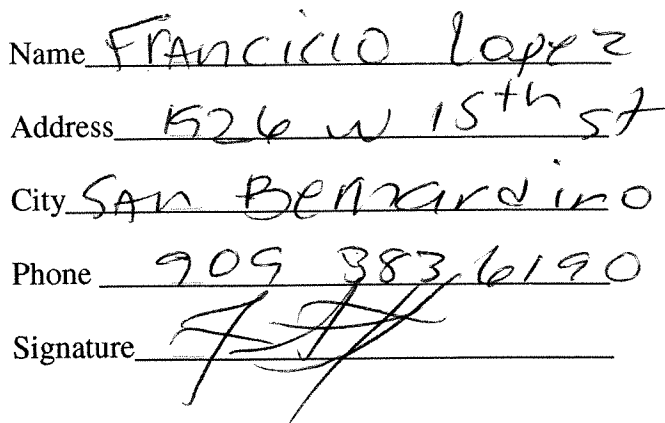 Name Francicio Lopez
Address 1526 W 15th St
City San Bernardino
Phone 909 383 6190
Signature